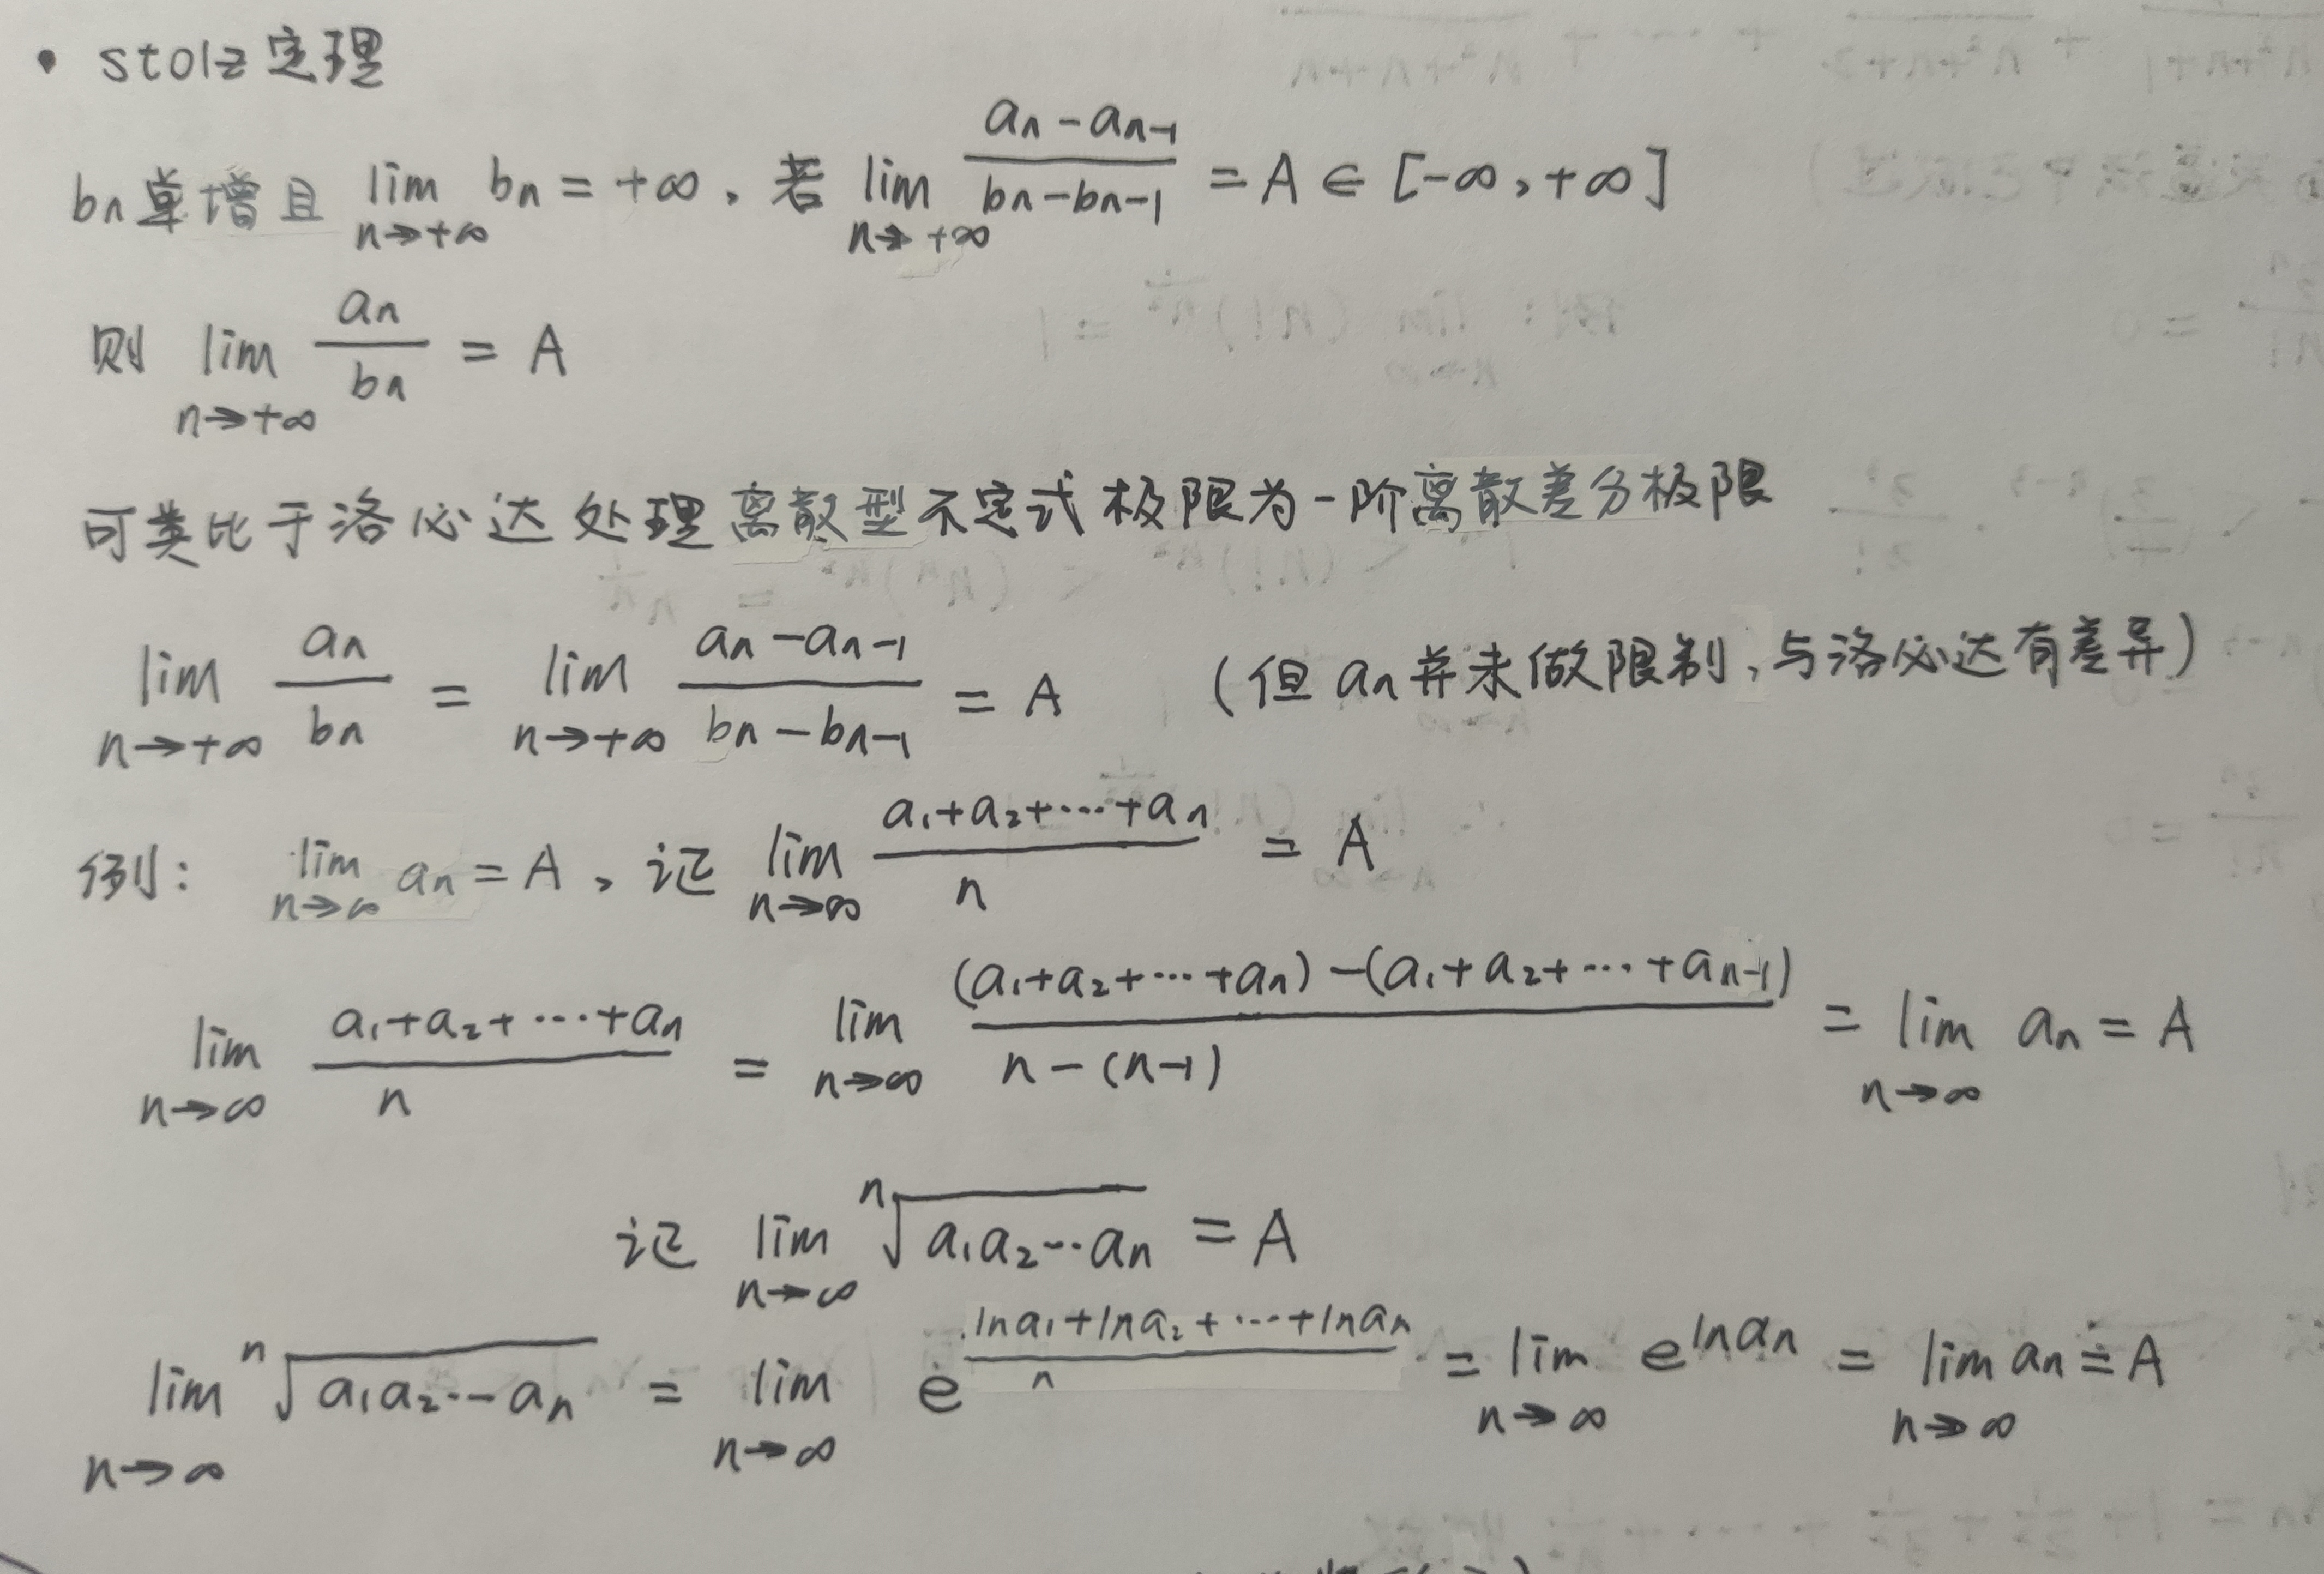 • stolz定理
bn单增且 lim_{n→+∞} bn = +∞, 若 lim_{n→+∞} (an - an-1)/(bn - bn-1) = A ∈ [-∞, +∞]
则 lim_{n→+∞} an/bn = A
可类比于洛必达处理离散型不定式极限为一阶离散差分极限
lim_{n→+∞} an/bn = lim_{n→+∞} (an - an-1)/(bn - bn-1) = A (但an并未做限制,与洛必达有差异)
例: lim_{n→∞} an = A, 证 lim_{n→∞} (a₁+a₂+···+an)/n = A
lim_{n→∞} (a₁+a₂+···+an)/n = lim_{n→∞} ((a₁+a₂+···+an)-(a₁+a₂+···+an-1))/(n-(n-1)) = lim_{n→∞} an = A
证 lim_{n→∞} ⁿ√(a₁a₂···an) = A
lim_{n→∞} ⁿ√(a₁a₂···an) = lim_{n→∞} e^{(lna₁+lna₂+···+lnan)/n} = lim_{n→∞} e^{lnan} = lim_{n→∞} an = A